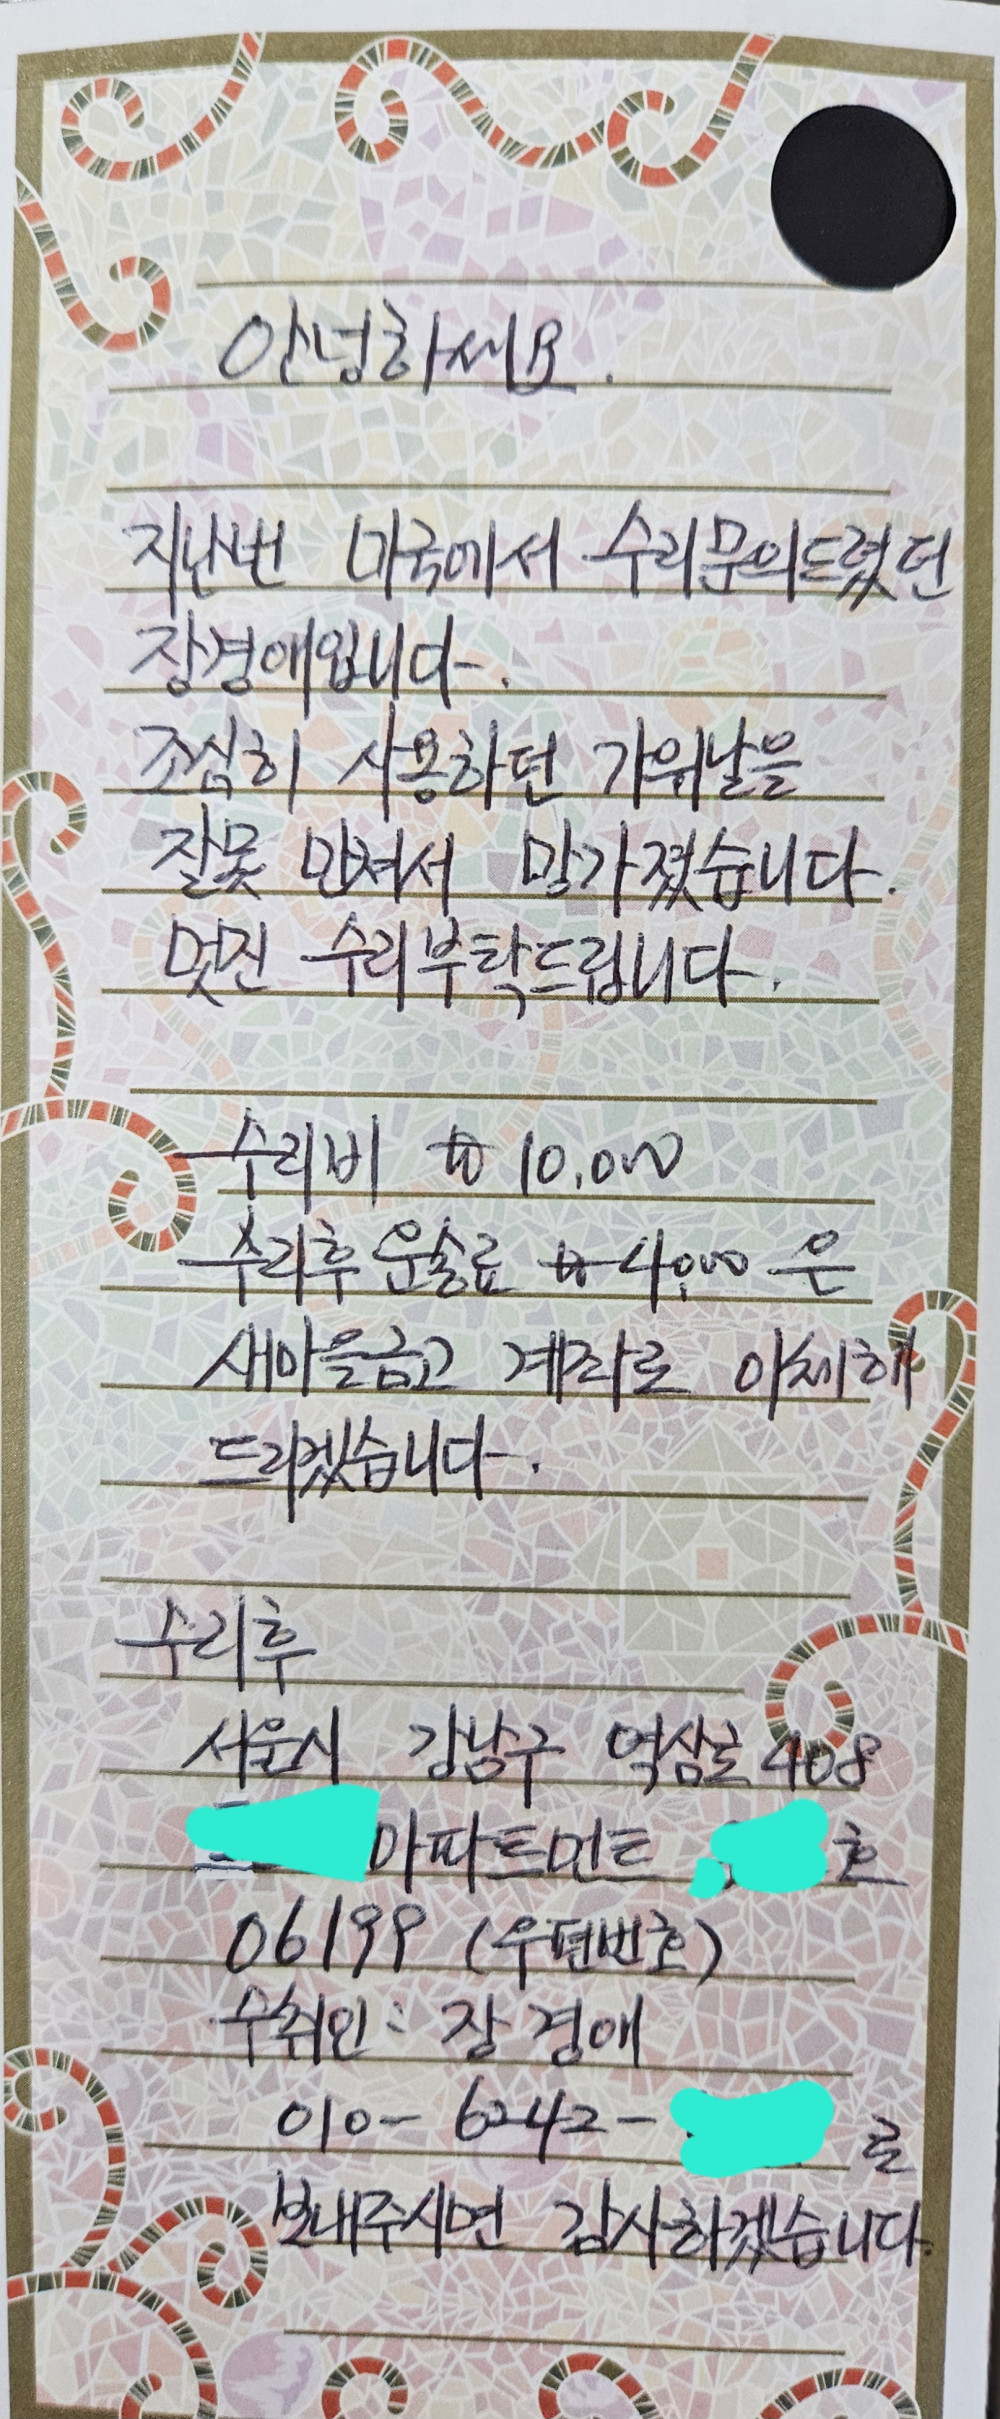 안녕하세요.
지난번 미국에서 수리문의드렸던
장경애입니다.
조심히 사용하던 가위날을
잘못 만져서 망가졌습니다.
멋진 수리부탁드립니다.
수리비 ₩10,000
수리후 운송료 ₩4,000 은
새마을금고 계좌로 이체해
드리겠습니다.
수리후
서울시 강남구 역삼로 408
아파트먼트 호
06199 (우편번호)
수취인: 장경애
010- 6242- 로
보내주시면 감사하겠습니다.